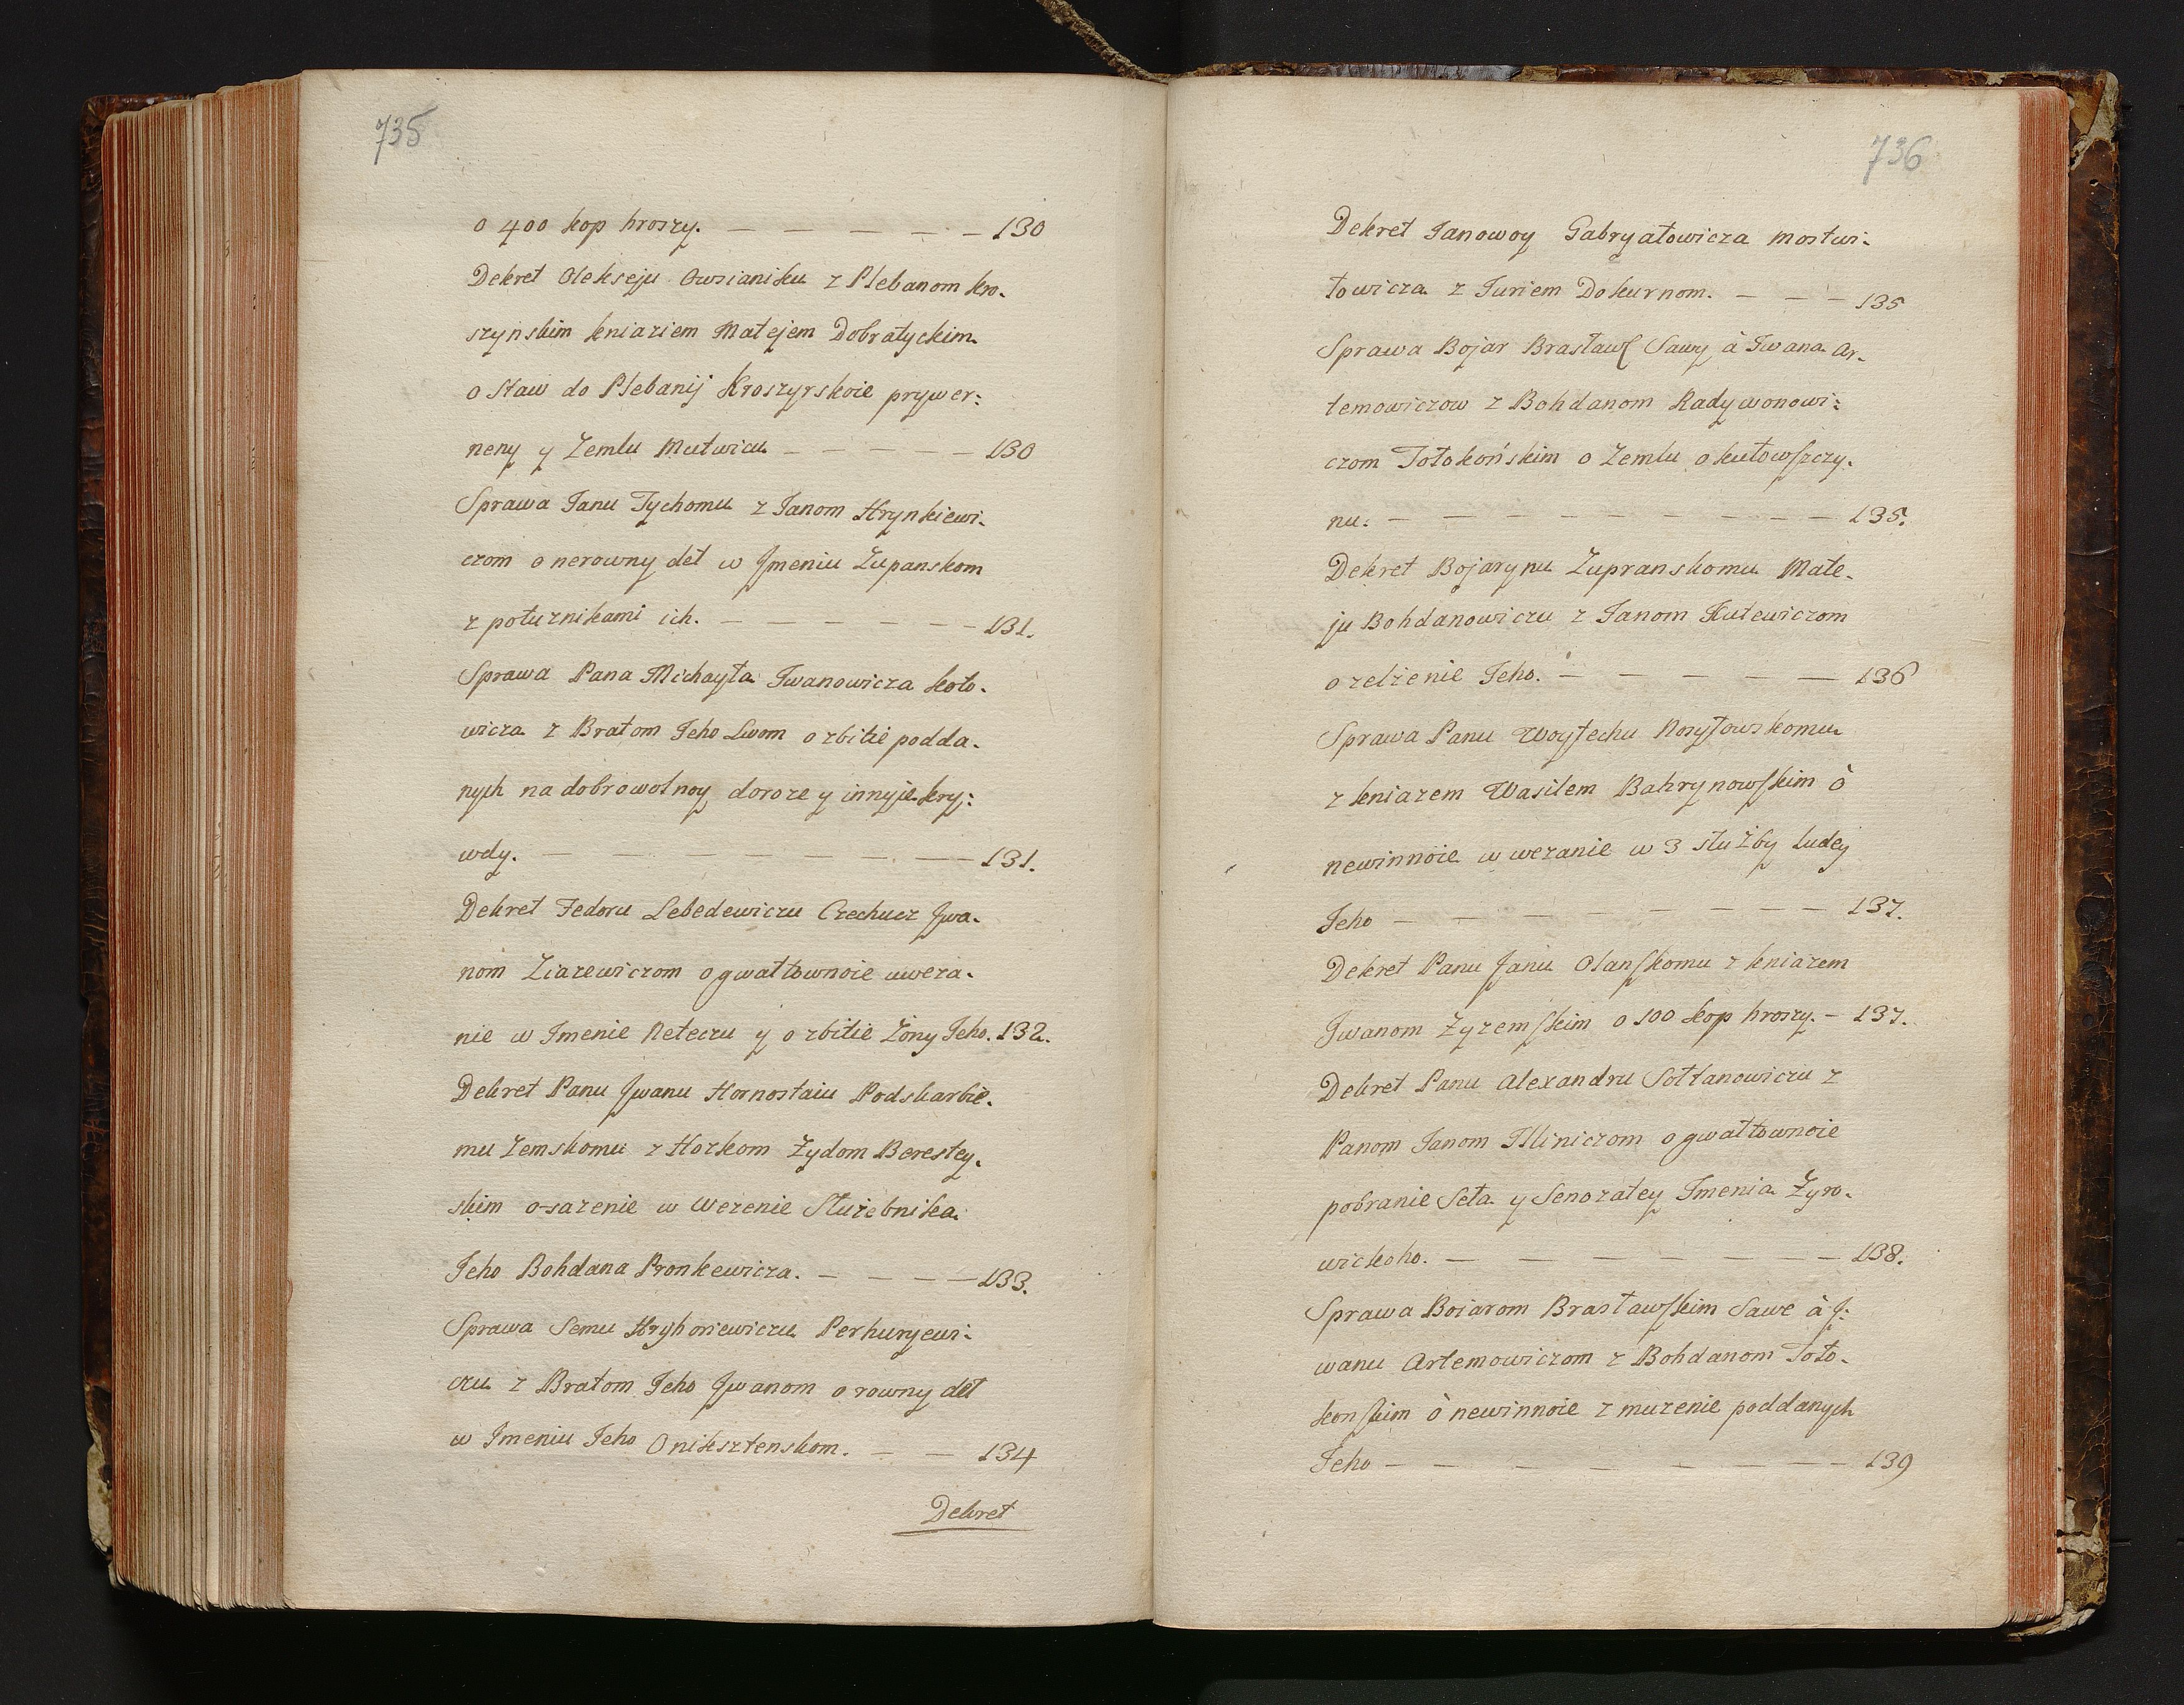 735
o 400 kop hroszy. — — — — — 130
Dekret Olekseju Owsianiku z Plebanom kro-
szyńskim kniaziem Matejem Dobratyckim
o staw do Plebanij Kroszyrskoie prywer:
neny y Zemlu Mutwicu — — — — — 130
Sprawa Janu Tychomu z Janom Hrynkiewi-
czom o nerowny deł w Jmeniu Zupanskom
z połuznikami ich. — — — — — — 131.
Sprawa Pana Michayła Iwanowicza koto-
wicza z Bratom Jeho Lwom o zbitie podda-
nych na dobrowolnoy doroze y innyje kry:
wdy. — — — — — — — 131.
Dekret Fedoru Lebedewiczu Czechucz Jwa-
nom Ziazewiczom o gwałtownoie uweza-
nie w Imenie Neteczu y o zbitie Żony Jeho. 132.
Dekret Panu Jwanu Hornostaiu Podskarbie-
mu Zemskomu z Hozkom Żydom Berestey-
skim o sazenie w Wezenie Służebnika
Jeho Bohdana Pronkewicza. — — — — 133.
Sprawa Semu Hryhoriewiczu Perhuryewi-
czu z Bratom Jeho Jwanom o rowny deł
w Imeniu Jeho Oniksztenskom. — — 134
Dekret
736
Dekret Janowoy Gabryałowicza Mostwi-
łowicza z Juriem Dokurnom. — — — 135
Sprawa Bojar Brasławſ Sawy à Iwana Ar-
temowiczow z Bohdanom Radywonowi:
czom Tołokońskim o Zemlu okułowſzczy-
nu. — — — — — — — — — 135.
Dekret Bojarynu Zupranskomu Mate-
ju Bohdanowiczu z Janom Kulewiczom
o zelżenie Jeho. — — — — — 136
Sprawa Panu Woytechu Nosyłowskomu
z kniazem Wasilem Bahrynowſkim ò
newinnoie w wezanie w 3 służby ludey
Jeho — — — — — — — — 137.
Dekret Panu Janu Olanſkomu z kniazem
Jwanom Żyzemſkim o 100 kop hroszy. — 137.
Dekret Panu Alexandru Sołtanowiczu z
Panom Janom Illiniczom o gwałtownoie
pobranie Seła y Senozatey Imenia Żyro-
wickoho. — — — — — — 138.
Sprawa Boiarom Brasławſkim Sawe à J:
wanu Artemowiczom z Bohdanom Toło-
konſkim ò newinnoie zmuzenie poddanych
Jeho — — — — — — — — 139